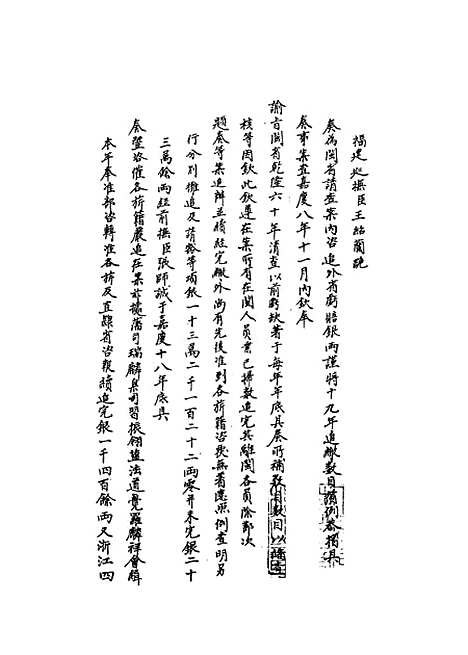 福建巡撫臣王紹蘭跪
奏為閩省請查案內咨追外省虧賠銀兩謹將十九年追繳數目循例恭摺具
奏事案查嘉慶八年十一月內欽奉
諭旨閩省乾隆六十年清查以前虧缺著于每年年底具奏所補數目數目以稽查
核等因欽此欽遵在案所有在閩人員業已掃數追完其離閩各員除節次
題奏等案追辦並續經完繳外尚有先後准到各旗籍咨報無著應照例查明另
行分別攤追及請豁等項銀一十三萬二千一百二十二兩零并未完銀二十
三萬餘兩經前撫臣張師誠于嘉慶十八年底具
奏暨咨催各旗籍嚴追在案茲據藩司瑞麟臬司習振翎鹽法道覺羅麟祥會詳
本年奉准部咨轉准各旗及直隸省咨報續追完銀一千四百餘兩又浙江四